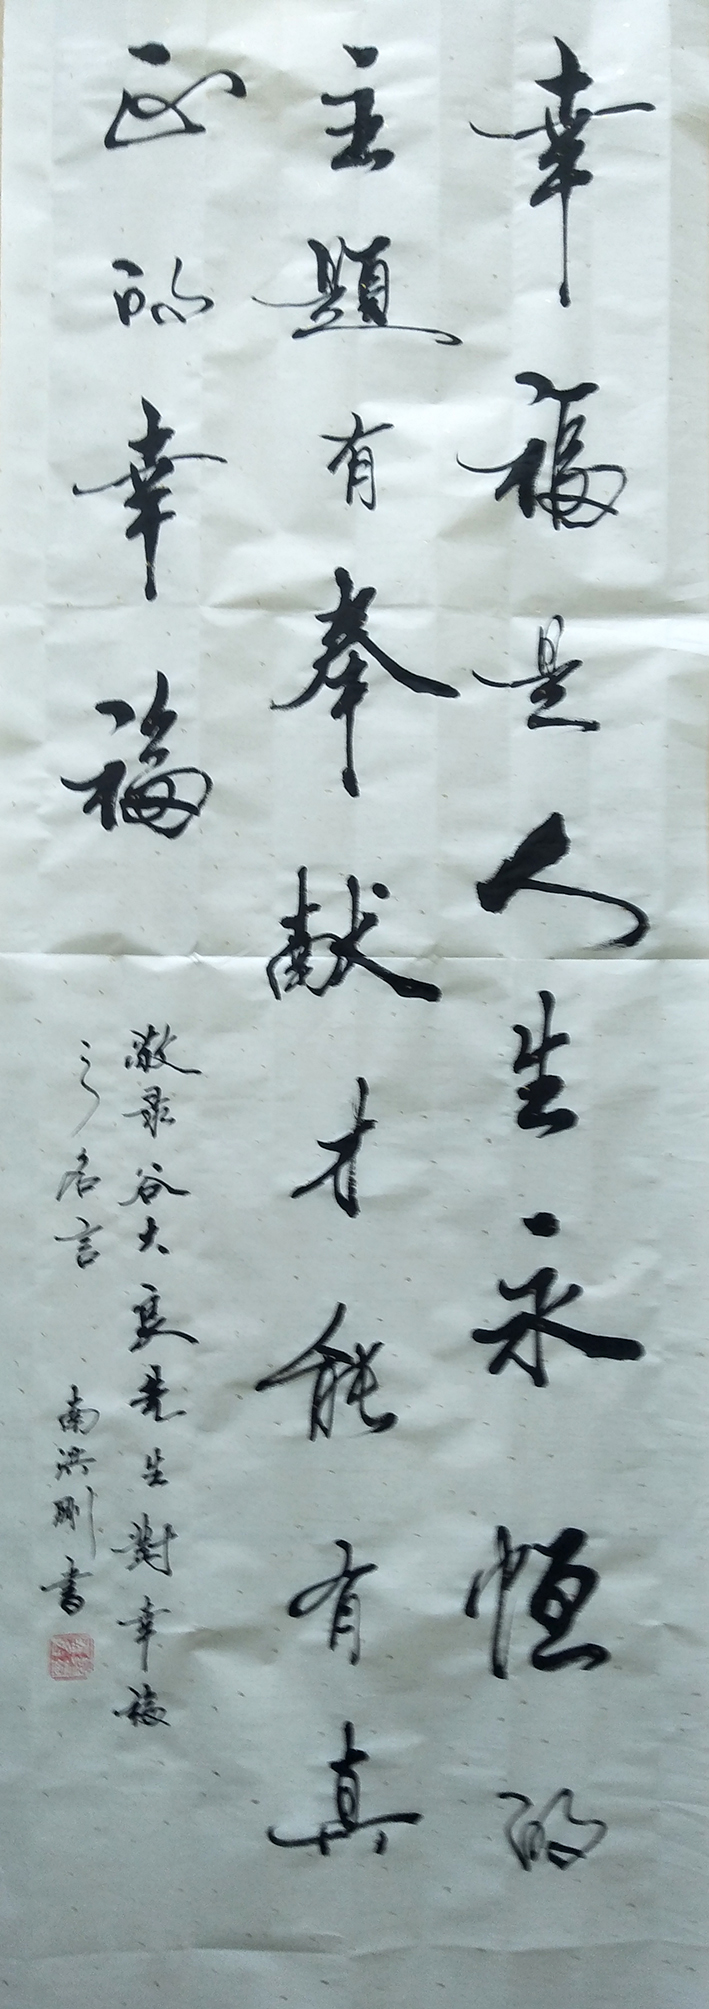 幸福是人生永恒的
主題有奉献才能有真
正的幸福
敬录谷大良先生對幸福
之名言
南洪剛書